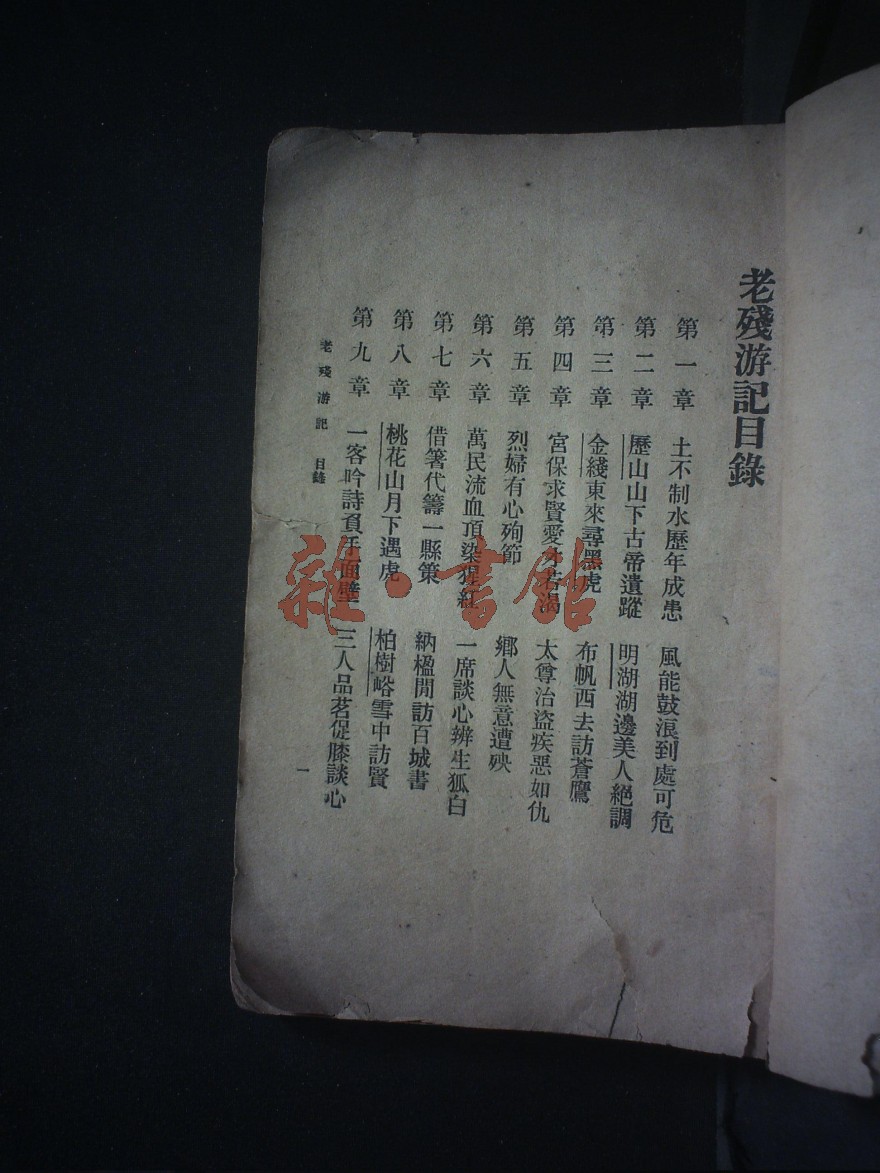 老殘游記目錄
第一章 土不制水歷年成患 風能鼓浪到處可危
第二章 歷山山下古帝遺蹤 明湖湖邊美人絕調
第三章 金綫東來尋黑虎 布帆西去訪蒼鷹
第四章 宮保求賢愛才若渴 太尊治盜疾惡如仇
第五章 烈婦有心殉節 鄉人無意遭殃
第六章 萬民流血頂染猩紅 一席談心辨生狐白
第七章 借箸代籌一縣策 納楹閒訪百城書
第八章 桃花山月下遇虎 柏樹峪雪中訪賢
第九章 一客吟詩負手面壁 三人品茗促膝談心
老殘游記 目錄
一
雜·書館